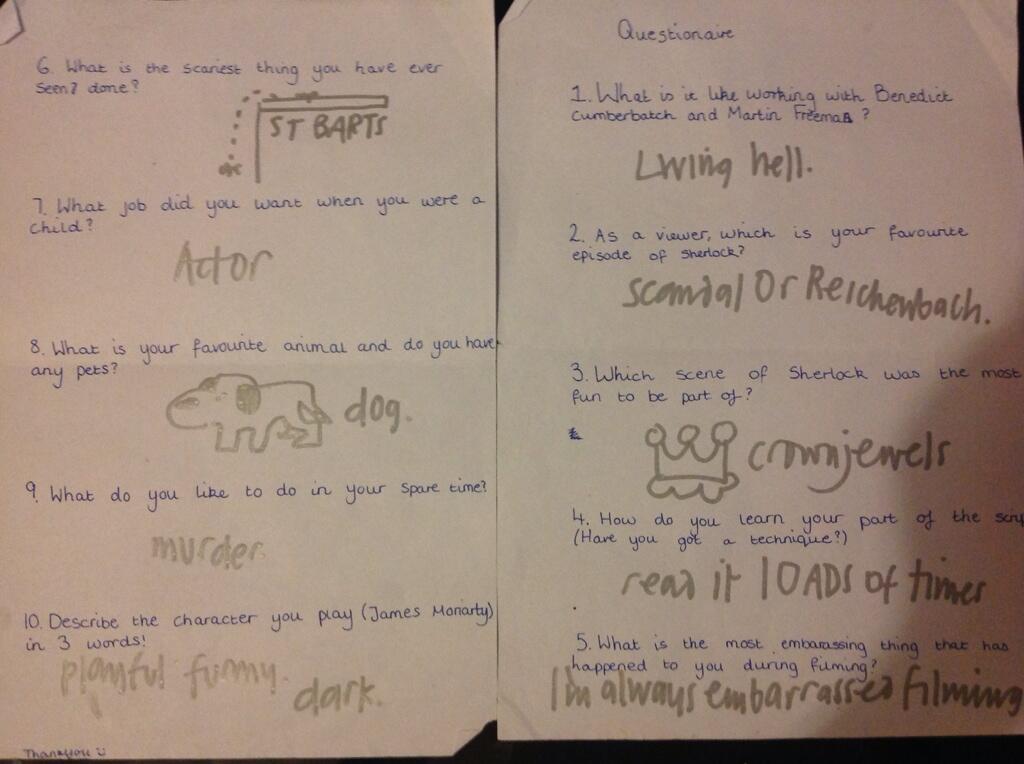 Questionaire
1. What is it like working with Benedict
Cumberbatch and Martin Freeman?
Living hell.
2. As a viewer, which is your favourite
episode of Sherlock?
Scandal Or Reichenbach.
3. Which scene of Sherlock was the most
fun to be part of?
crownjewels
4. How do you learn your part of the
(Have you got a technique?)
read it lOADS of times
5. What is the most embarassing thing that has
happened to you during filming?
I'm always embarrassed filming
6. What is the scariest thing you have ever
seen? done?
ST BARTS
7. What job did you want when you were a
child?
Actor
8. What is your favourite animal and do you have
any pets?
dog.
9. What do you like to do in your spare time?
murder.
10. Describe the character you play (James Moriarty)
in 3 words!
playful funny.
dark.
Thankyou